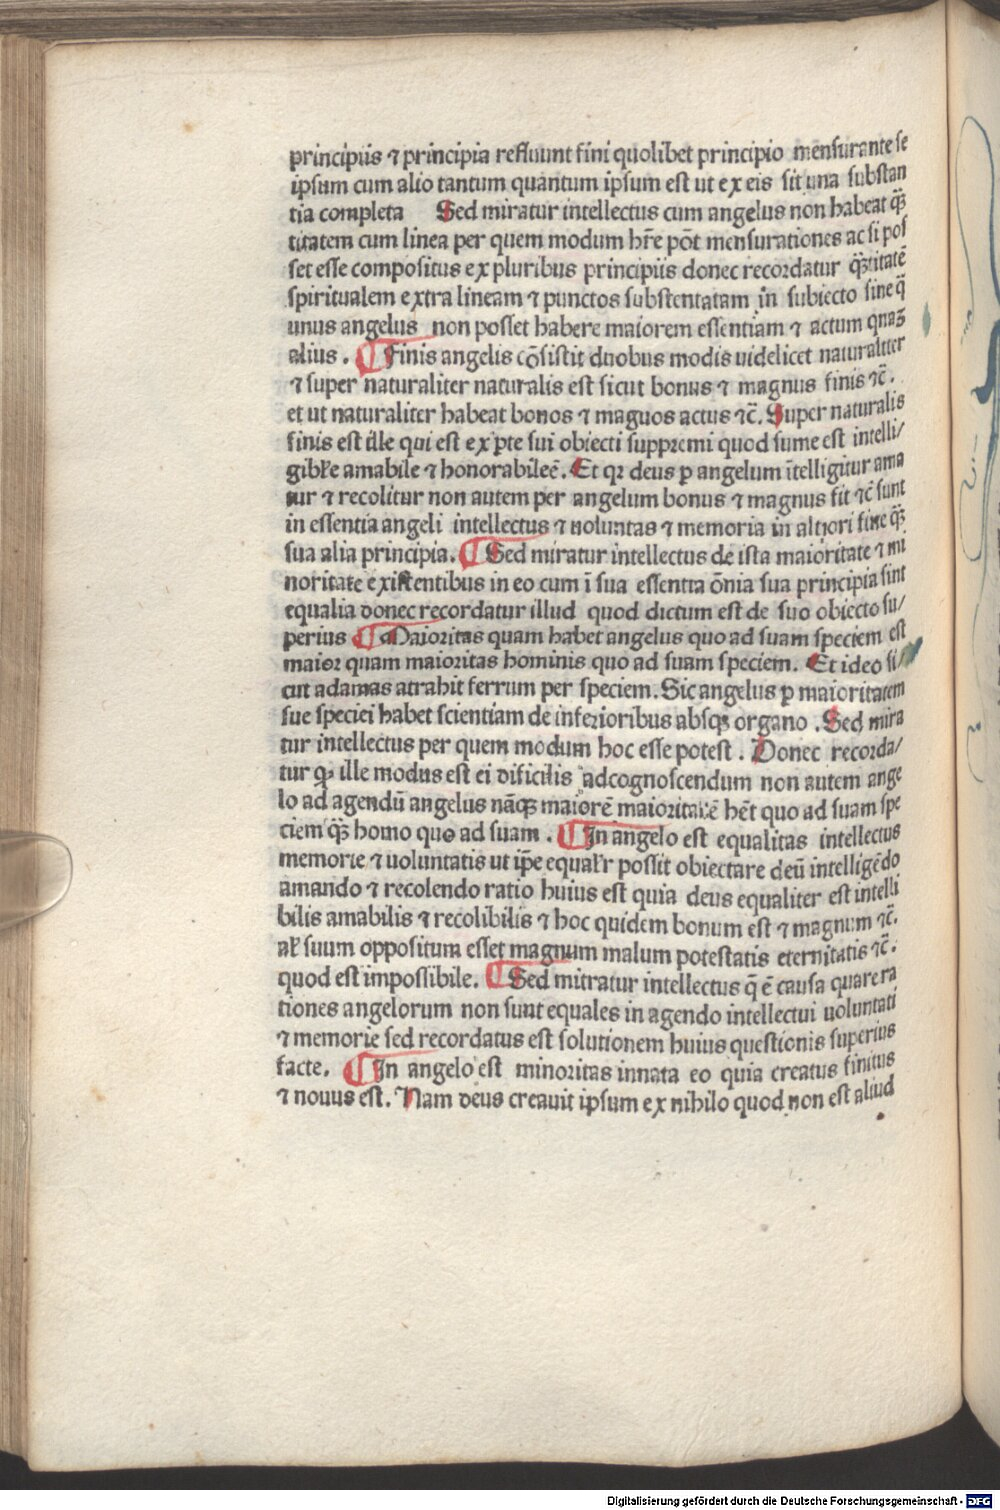 principiis ⁊ principia refluunt fini quolibet principio mensurante se
ipsum cum alio tantum quantum ipsum est ut ex eis sit una substan
tia completa Sed miratur intellectus cum angelus non habeat q̄ꝫ
titatem cum linea per quem modum hr̄e pōt mensurationes ac si pos
set esse compositus ex pluribus principiis donec recordatur q̄ꝫtitatē
spiritualem extra lineam ⁊ punctos substentatam in subiecto sine q̄
unus angelus non posset habere maiorem essentiam ⁊ actum quaꝫ
alius . ¶ Finis angelis cōsistit duobus modis uidelicet naturaliter
⁊ super naturaliter naturalis est sicut bonus ⁊ magnus finis ⁊c̄.
et ut naturaliter habeat bonos ⁊ maguos actus ⁊c̄. Super naturalis
finis est ille qui est ex ꝑte sui obiecti suppremi quod sume est intelli/
gibłe amabile ⁊ honorabileē. Et qꝛ deus ꝑ angelum ītelligitur ama
tur ⁊ recolitur non autem per angelum bonus ⁊ magnus fit ⁊c̄ sunt
in essentia angeli intellectus ⁊ uoluntas ⁊ memoria in altiori fine q̄ꝫ
sua alia principia. ¶ Sed miratur intellectus de ista maioritate ⁊ mi
noritate existentibus in eo cum ī sua essentia ōnia sua principia sint
equalia donec recordatur illud quod dictum est de suo obiecto su/
perius ¶ Maioritas quam habet angelus quo ad suam speciem est
maior quam maioritas hominis quo ad suam speciem. Et ideo si/
cut adamas atrahit ferrum per speciem. Sic angelus ꝑ maioritatem
sue speciei habet scientiam de inferioribus absqꝫ organo . Sed mira
tur intellectus per quem modum hoc esse potest . Donec recorda/
tur qꝫ ille modus est ei dificilis adcognoscendum non autem ange
lo ad agendū angelus nāqꝫ maiorē maioritatē hēt quo ad suam spe
ciem q̄ꝫ homo quo ad suam . ¶ In angelo est equalitas intellectus
memorie ⁊ uoluntatis ut ip̄e equałr possit obiectare deū intelligēdo
amando ⁊ recolendo ratio huius est quia deus equaliter est intelli
bilis amabilis ⁊ recolibilis ⁊ hoc quidem bonum est ⁊ magnum ⁊c̄.
ał suum oppositum esset magnum malum potestatis eternitatis ⁊c̄.
quod est impossibile. ¶ Sed mitratur intellectus q̄ ē causa quare ra
tiones angelorum non sunt equales in agendo intellectui uoluntati
⁊ memorie sed recordatus est solutionem huius questionis superius
facte. ¶ In angelo est minoritas innata eo quia creatus finitus
⁊ nouus est. Nam deus creauit ipsum ex nihilo quod non est aliud
Digitalisierung gefördert durch die Deutsche Forschungsgemeinschaft - DFG